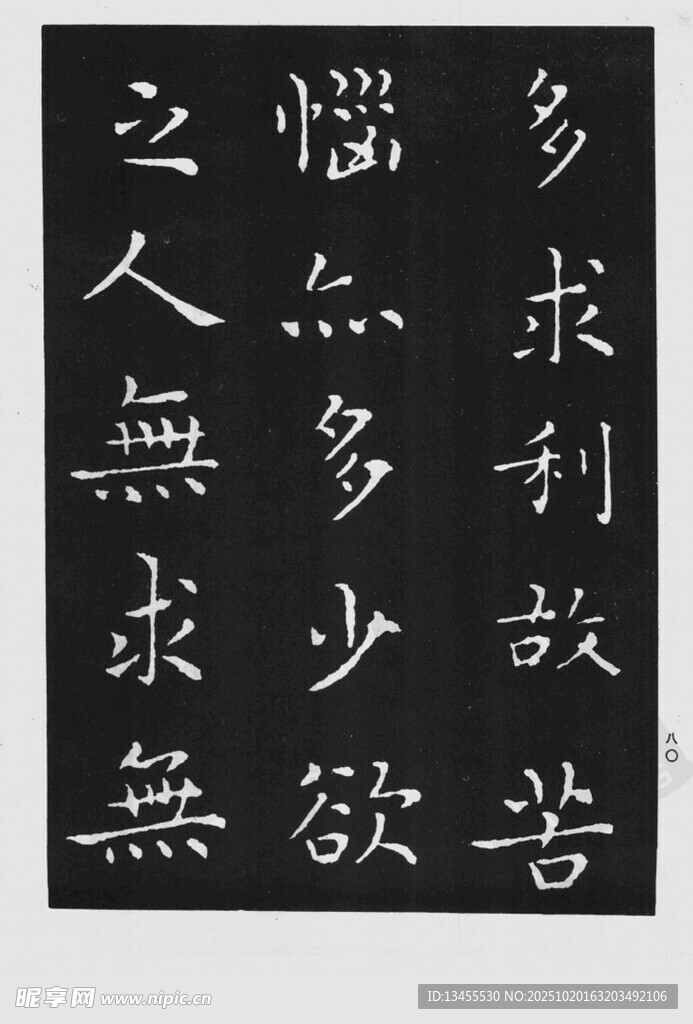 多求利故苦
惱亦多少欲
之人無求無
八〇
昵享网 www.nipic.cn
ID:13455530 NO:20251020163203492106